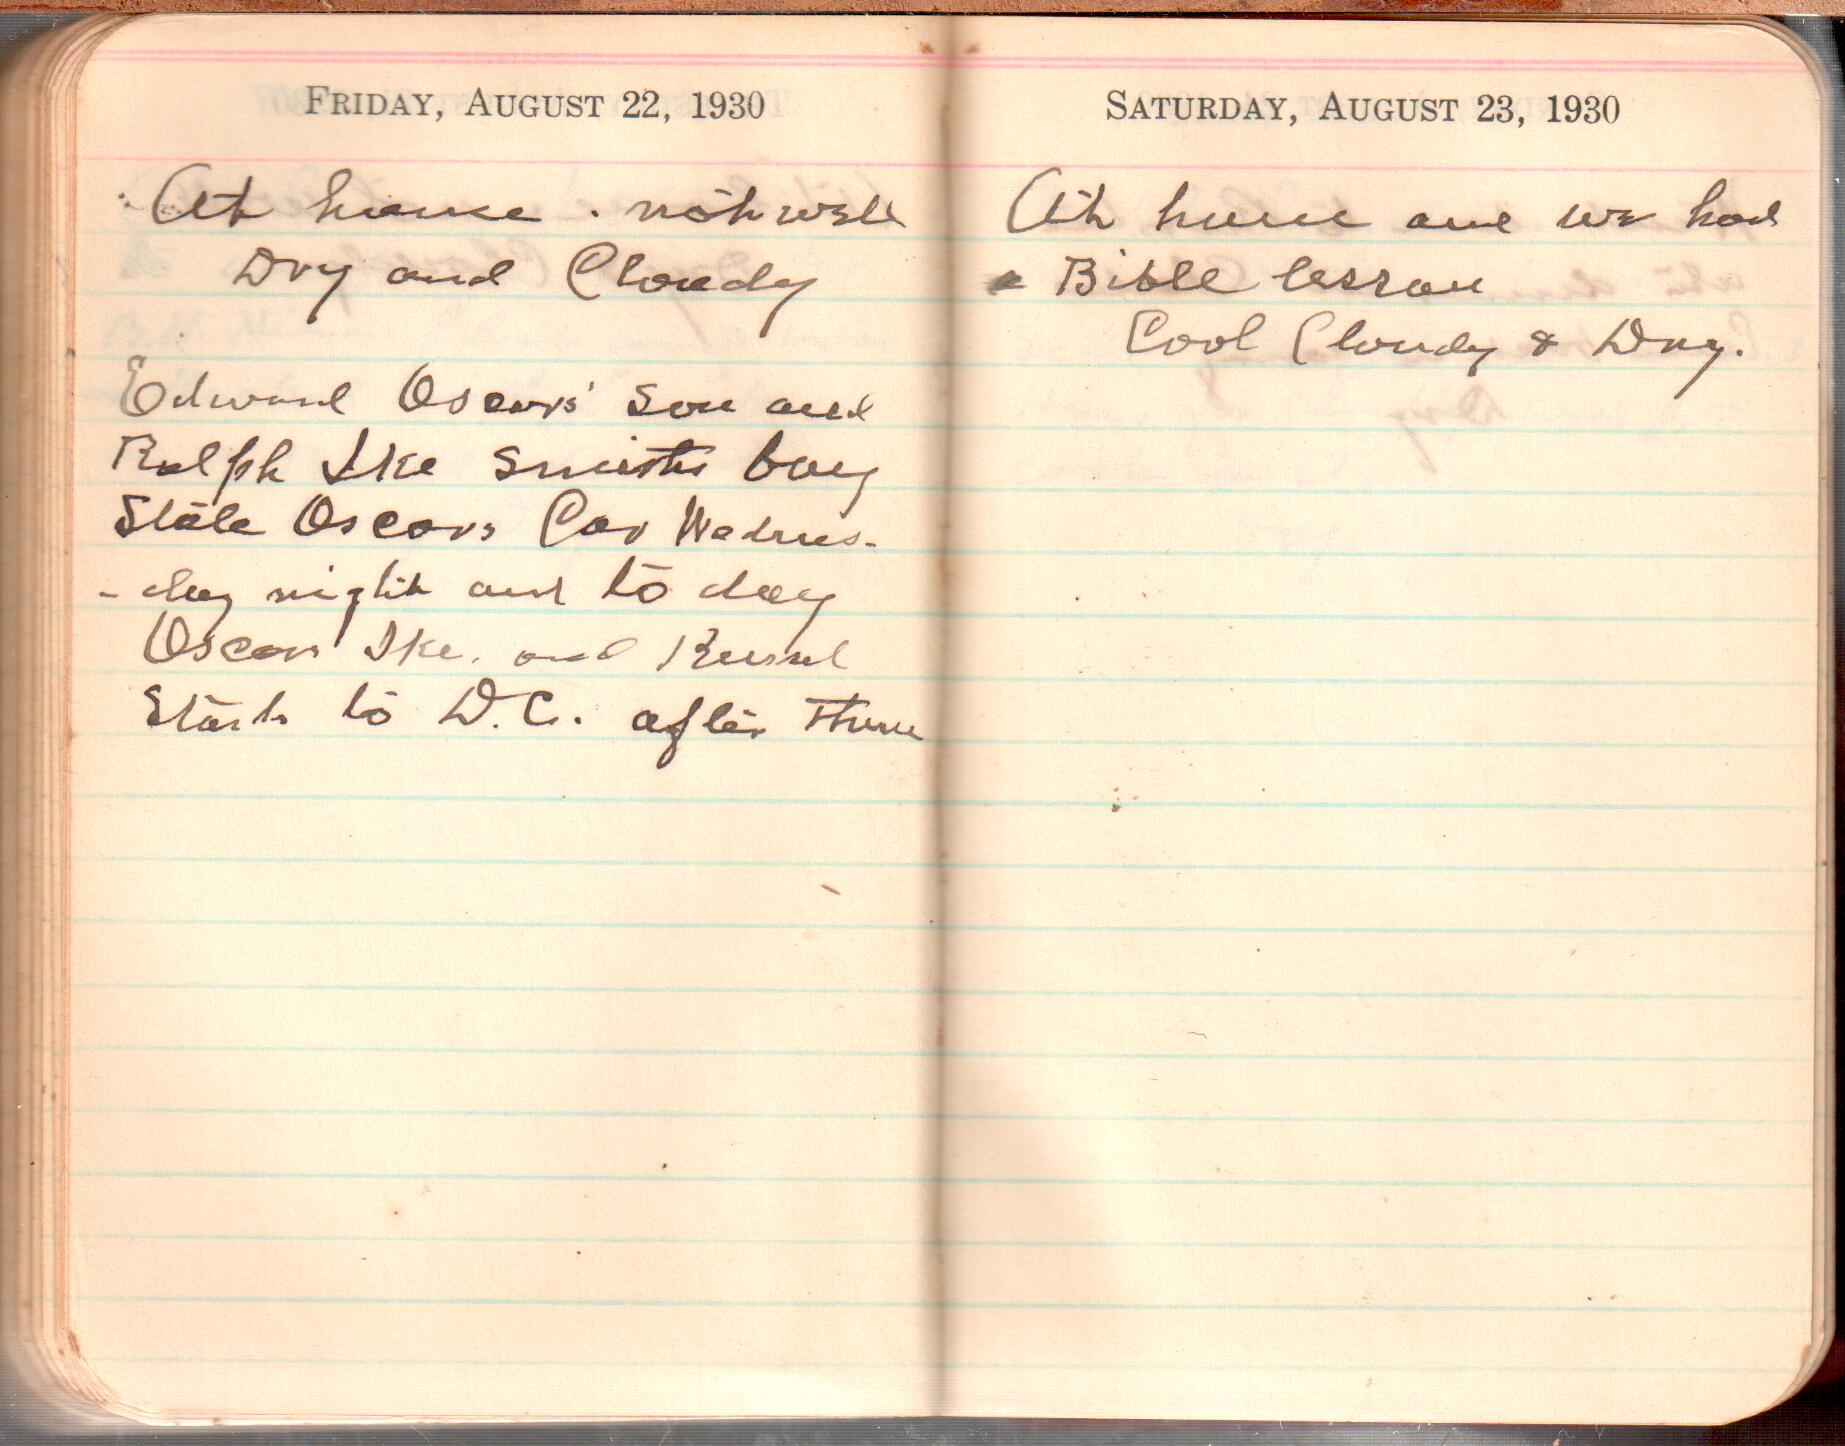 FRIDAY, AUGUST 22, 1930
At home . not well
Dry and Cloudy
Edward Oscars' son and
Ralph Ike Smiths boy
Stole Oscars Car Wednes-
-day night and to day
Oscar Ike. and Russel
Start to D.C. after them
SATURDAY, AUGUST 23, 1930
At home and we had
a Bible lesson
Cool Cloudy & Dry.